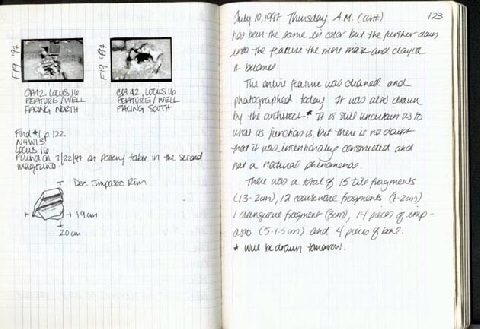 F19 '92
F19 '92
OA42, LOCUS 16
FEATURE / WELL
FACING NORTH
OA42, LOCUS 16
FEATURE / WELL
FACING SOUTH
Find #1, p. 122
LOCUS 16
Found on
in the second
Dec. Imposed Rim
19 cm
20 cm
July 10, 1992 Thursday A.M. (cont) 123
has been the same in color but the further down
into the feature the more and clayey
it became.
The entire feature was cleaned and
photographed today. It was also drawn
by the architect.* It is still uncertain as to
what its function is, but there is no doubt
that it was intentionally constructed and
not a natural phenomenon.
There was a total of 15 tile fragments
(13-2cm), 12 coarseware fragments (7-2cm)
1 fragment (3cm), 14 pieces of
(5-1.5cm) and 4 pieces of bone.
* Will be drawn tomorrow.